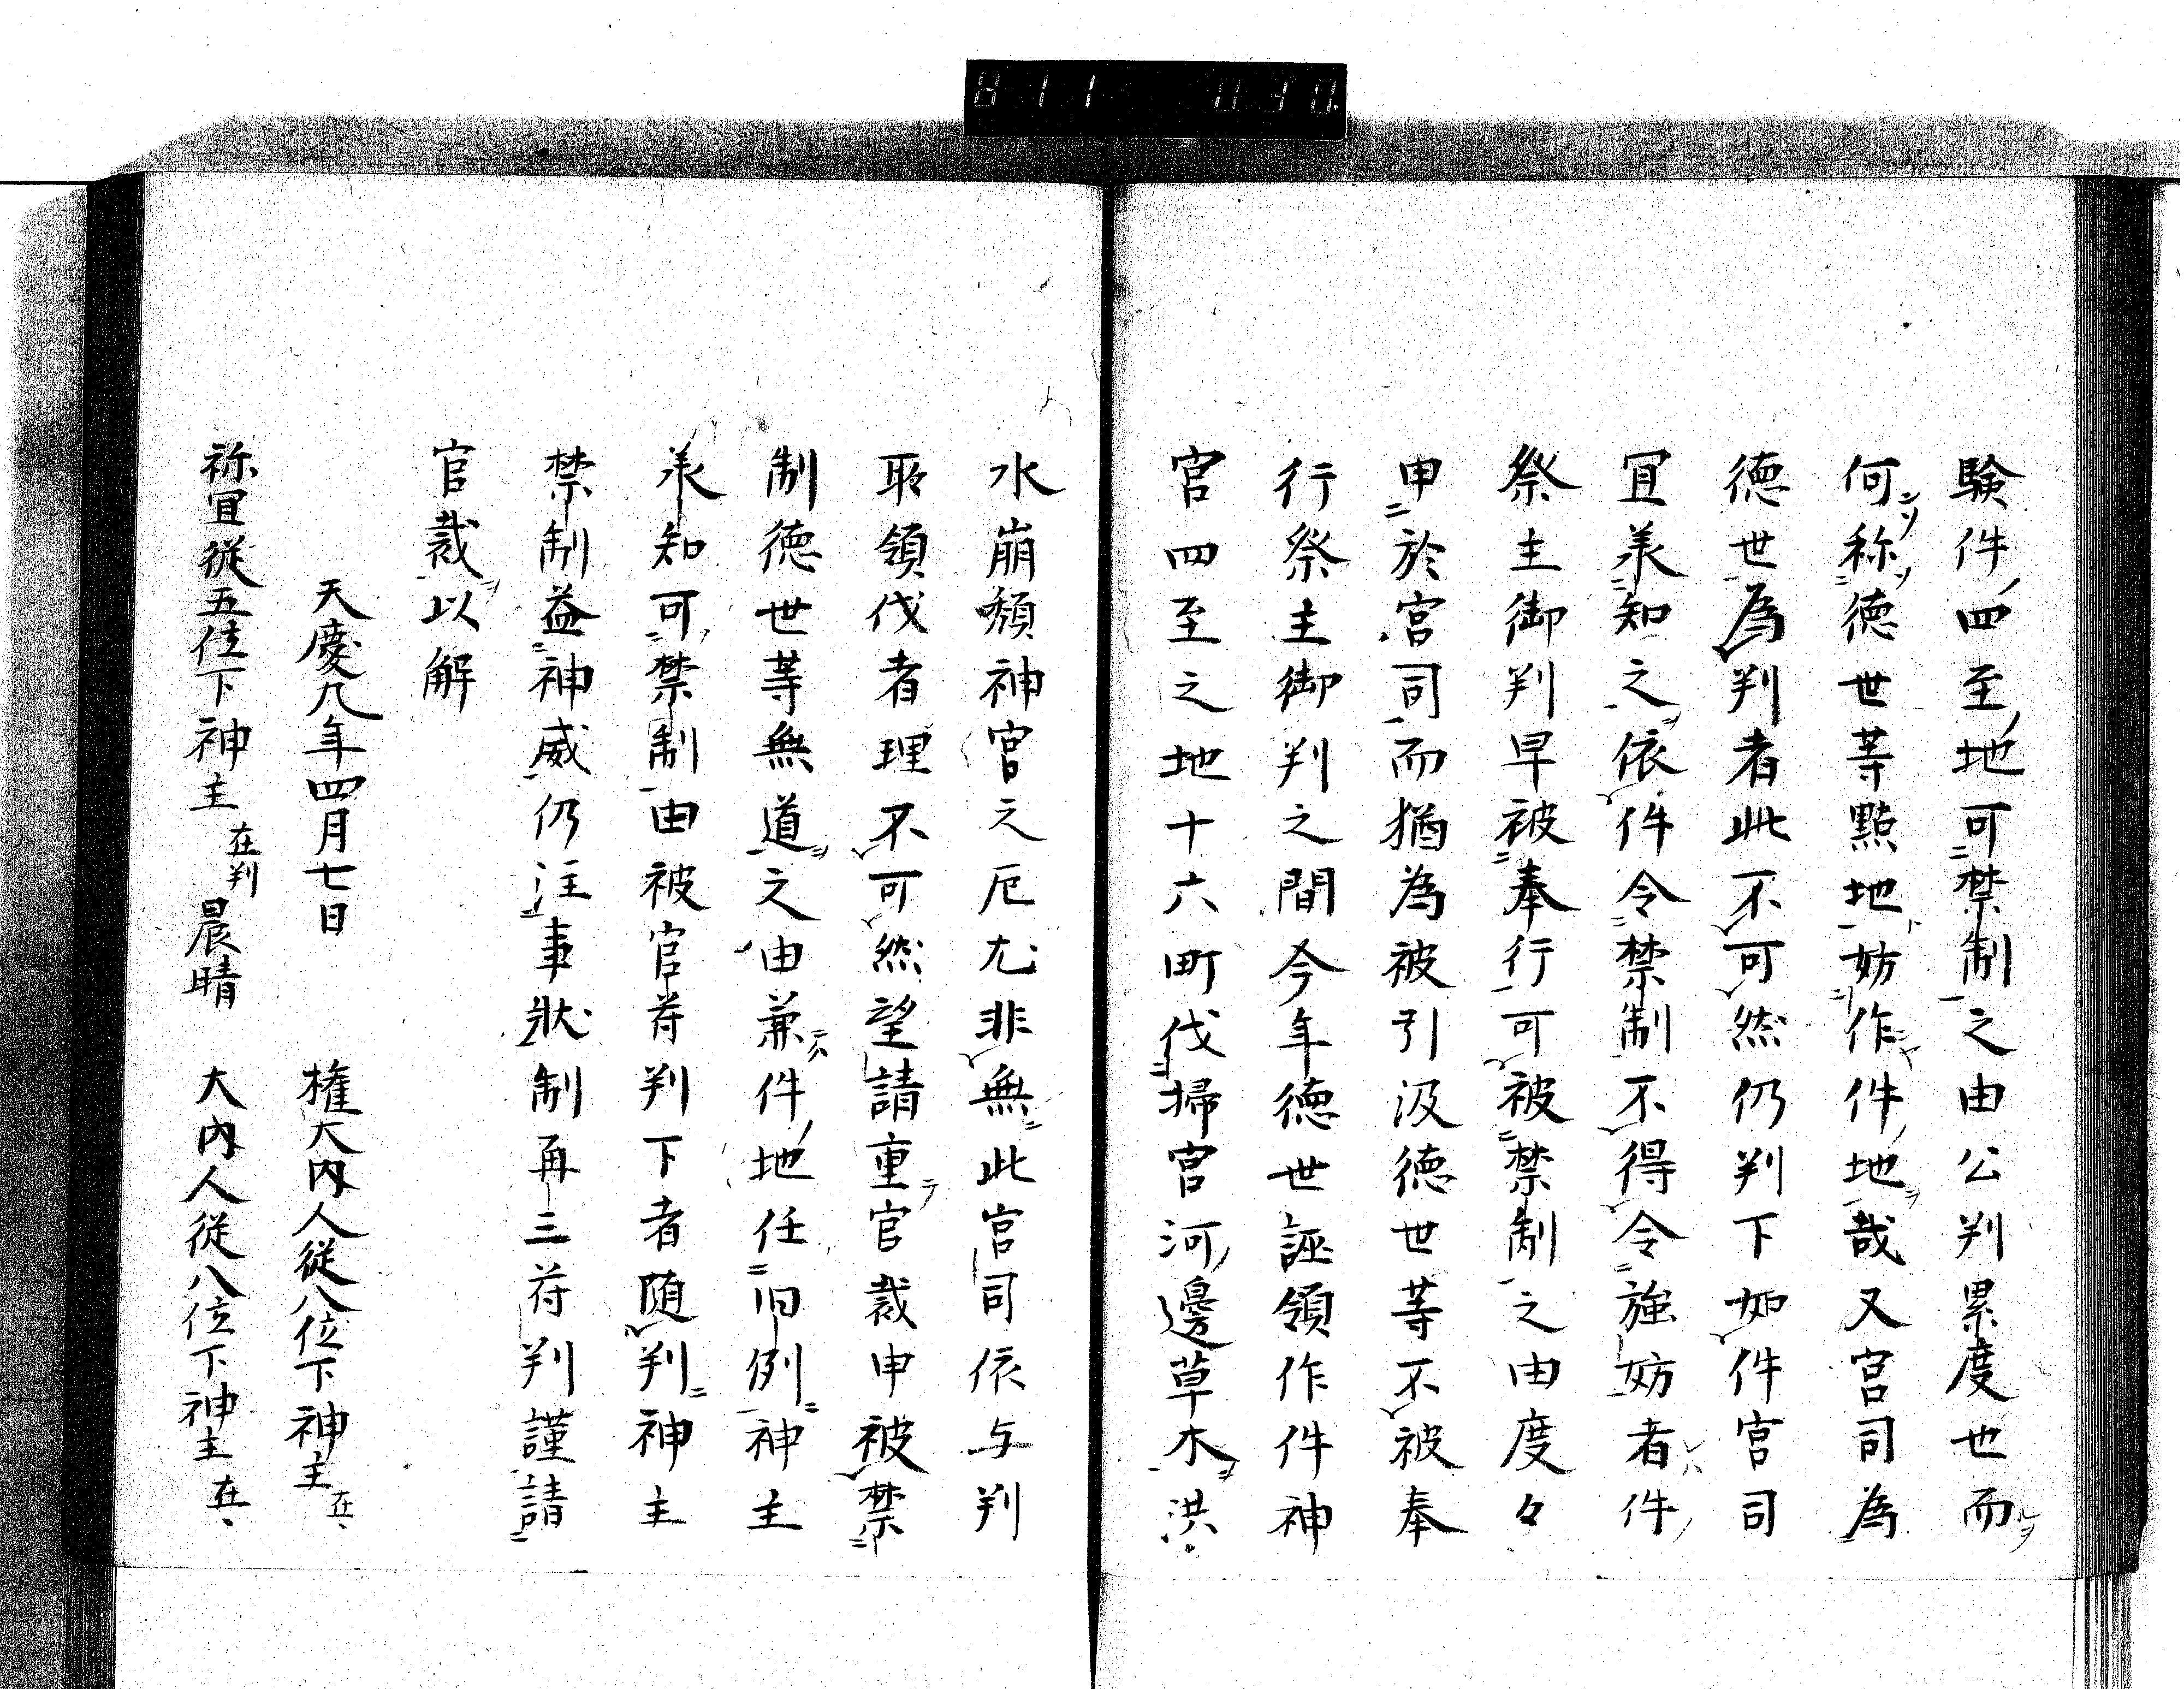 験件四至地可禁制之由公判累度也而
何称徳世等點地妨作件地哉又宮司為
徳世為判者此不可然仍判下如件宮司
宜承知之依件令禁制不得令強妨者件
祭主御判早被奉行可被禁制之由度々
申於宮司而猶為被引汲徳世等不被奉
行祭主御判之間今年徳世誣領作件神
宮四至之地十六町伐掃宮河邊草木洪
水崩頽神宮之厄尤非無此宮司依与判
取領伐者理不可然望請重官裁申被禁
制徳世等無道之由兼件地任旧例神主
承知可禁制由被官符判下者随判神主
禁制益神威仍注事状制再三符判謹請
官裁以解
天慶八年四月七日 権大内人従八位下神主在、
祢宜従五位下神主在判晨晴 大内人従八位下神主在、